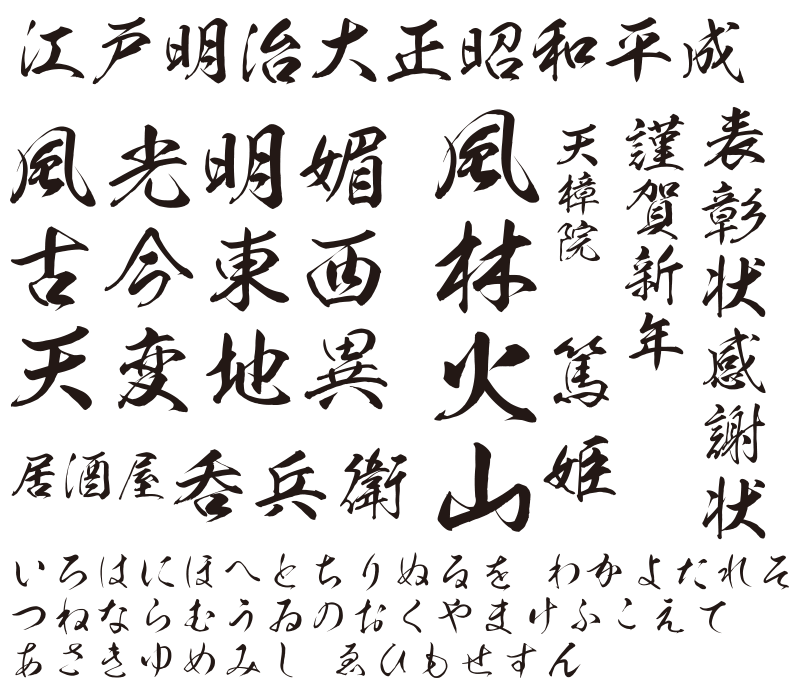 江戸明治大正昭和平成
風光明媚
古今東西
天変地異
居酒屋 呑兵衛
風林火山
天樟院 篤姫
謹賀新年
表彰状感謝状
いろはにほへとちりぬるを わかよたれそ
つねならむうゐのおくやまけふこえて
あさきゆめみし ゑひもせすん